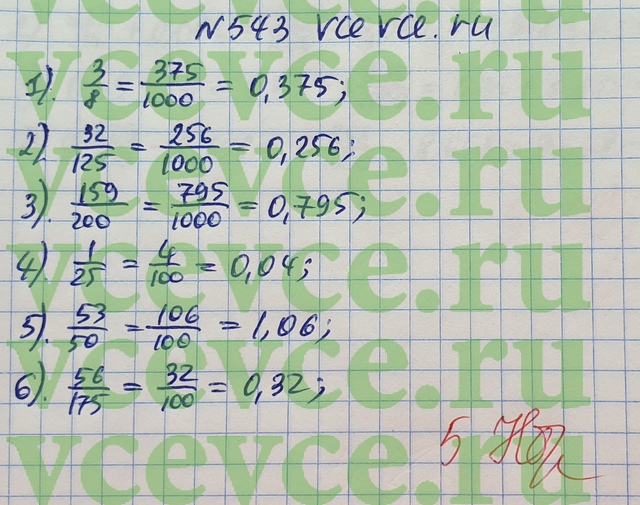 №543 vcevce.ru
1). 3/8 = 375/1000 = 0,375;
2) 32/125 = 256/1000 = 0,256;
3). 159/200 = 795/1000 = 0,795;
4). 1/25 = 4/100 = 0,04;
5). 53/50 = 106/100 = 1,06;
6). 56/175 = 32/100 = 0,32;
5
vcevce.ru
vcevce.ru
vcevce.ru
vcevce.ru
vcevce.ru